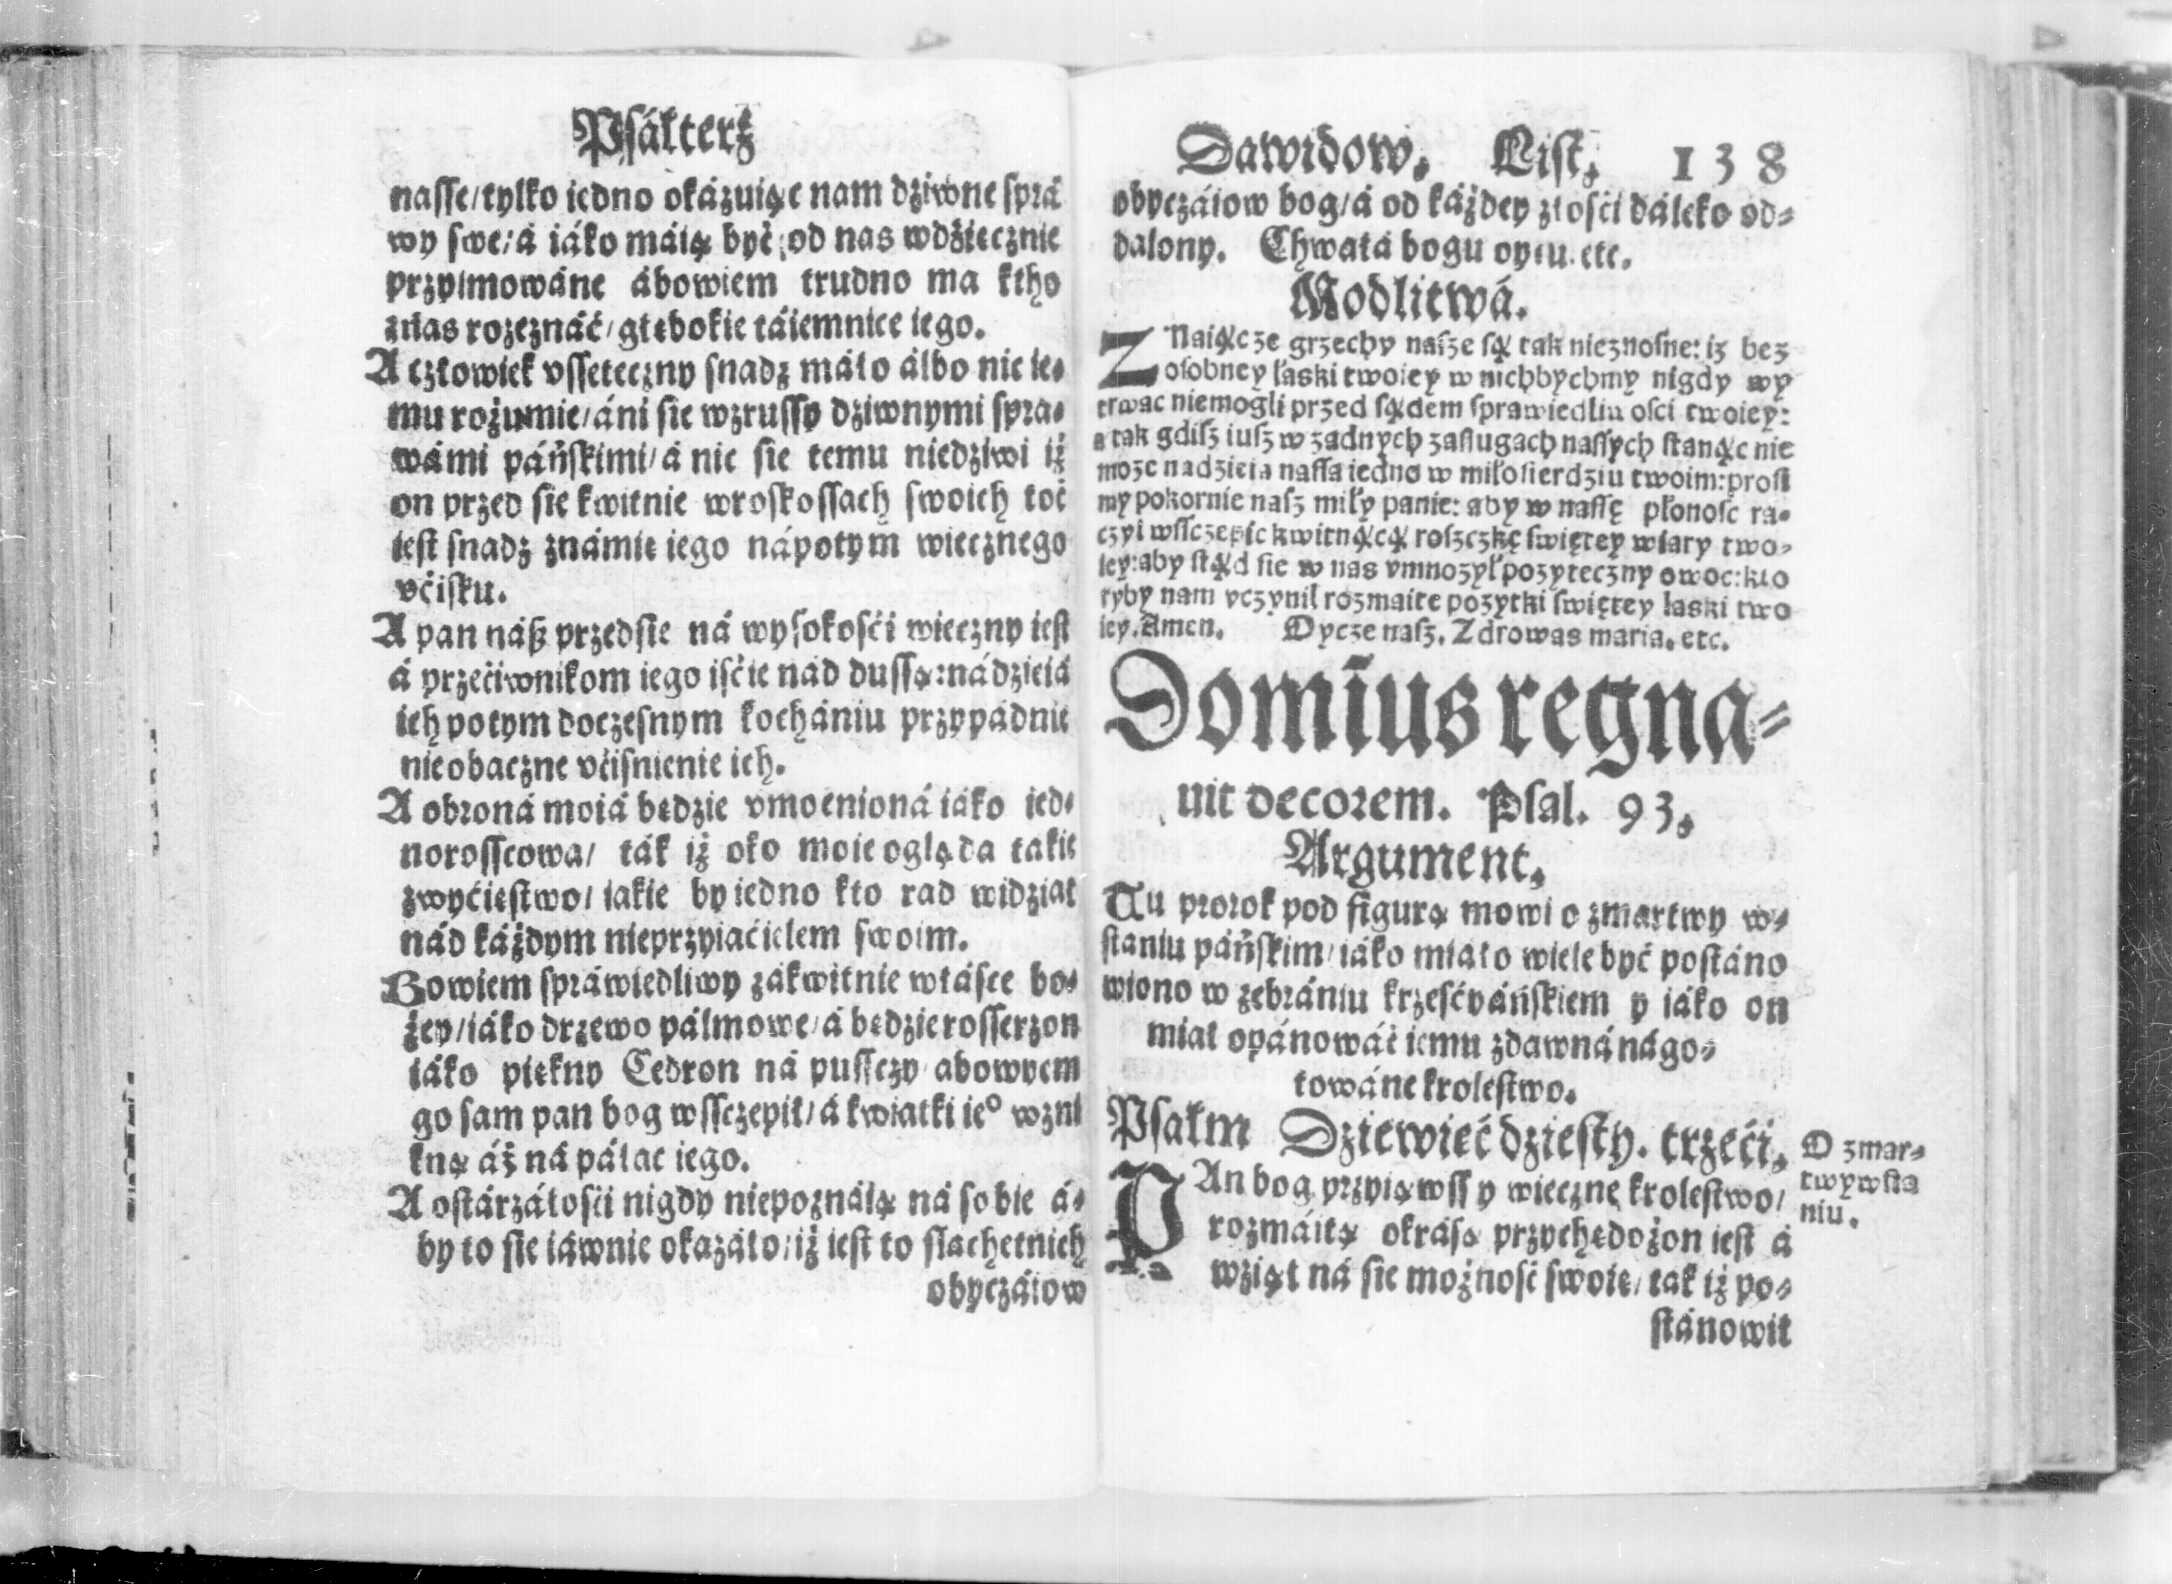 Psáłterz
nasse/tylko iedno okázuiąc nam dziwne sprá
wy swe/á iáko máią być od nas wdźięcznie
przyimowáne ábowiem trudno ma ktho
znas rozeznáć/głębokie táiemnice iego.
A człowiek vsseteczny snadz máło álbo nic ie⸗
mu rozumie/áni sie wzrussy dziwnymi spra⸗
wámi páńskimi/á nic sie temu niedziwi iż
on przed sie kwitnie wroskossach swoich toć
iest snadz známię iego nápotym wiecznego
vćisku.
A pan náß przedsie ná wysokośći wieczny iest
á przećiwnikom iego iśćie nád dussą:nádzieiá
ich potym doczesnym kochániu przypádnie
nieobaczne vćisnienie ich.
A obroná moiá będzie vmocnioná iáko ied⸗
norosscowa/ ták iż oko moie ogląda takie
zwyćięstwo/ iakie by iedno kto rad widział
nád káżdym nieprzyiaćielem swoim.
Bowiem spráwiedliwy zákwitnie włásce bo⸗
żey/iáko drzewo pálmowe/á będzie rosserzon
iáko piękny Cedron ná pussczy abowyem
go sam pan bog wssczepił/á kwiatki ieº wzni
kną áż ná páłac iego.
A ostárzáłośći nigdy niepoznáią ná sobie á⸗
by to sie iáwnie okazáło/iż iest to slachetnich
obyczáiow
Dawidow. List. 138
obyczáiow bog/á od káżdey złośći dáleko od⸗
dalony. Chwałá bogu oycu. etc.
Modlitwá.
ZNaiącze grzechy nasze są tak nieznosne: iz bez
osobney łaski twoiey w nichbychmy nigdy wy
trwac niemogli przed sądem sprawiedliwosci twoiey:
a tak gdisz iusz w zadnych zaslugach nassych stanąc nie
moze nadzieia nassa iedno w miłosierdziu twoim:prosi
my pokornie nasz miły panie: aby w nassę płonosc ra⸗
czyi wssczepic kwitnącą roszczkę swiętey wiary two⸗
iey:aby stąd sie w nas vmnozył pozyteczny owoc:kto
ryby nam vczynil rozmaite pozytki swiętey laski two
iey. Amen. Oycze nasz. Zdrowas maria. etc.
Domīus regna⸗
uit decorem. Psal. 93.
Argument.
Tu prorok pod figurą mowi o zmartwy w⸗
staniu páńskim/iáko miało wiele być postáno
wiono w zebrániu krześćyáńskiem y iáko on
miał opánowáć iemu zdawná nágo⸗
towáne krolestwo.
Psałm Dziewiećdziesty. trzeći.
O zmar⸗
twywsta
niu.
PAn bog przyiąwssy wieczne krolestwo/
rozmáitą okrasą przychędożon iest á
wziął ná sie możność swoię/tak iż po⸗
stánowił